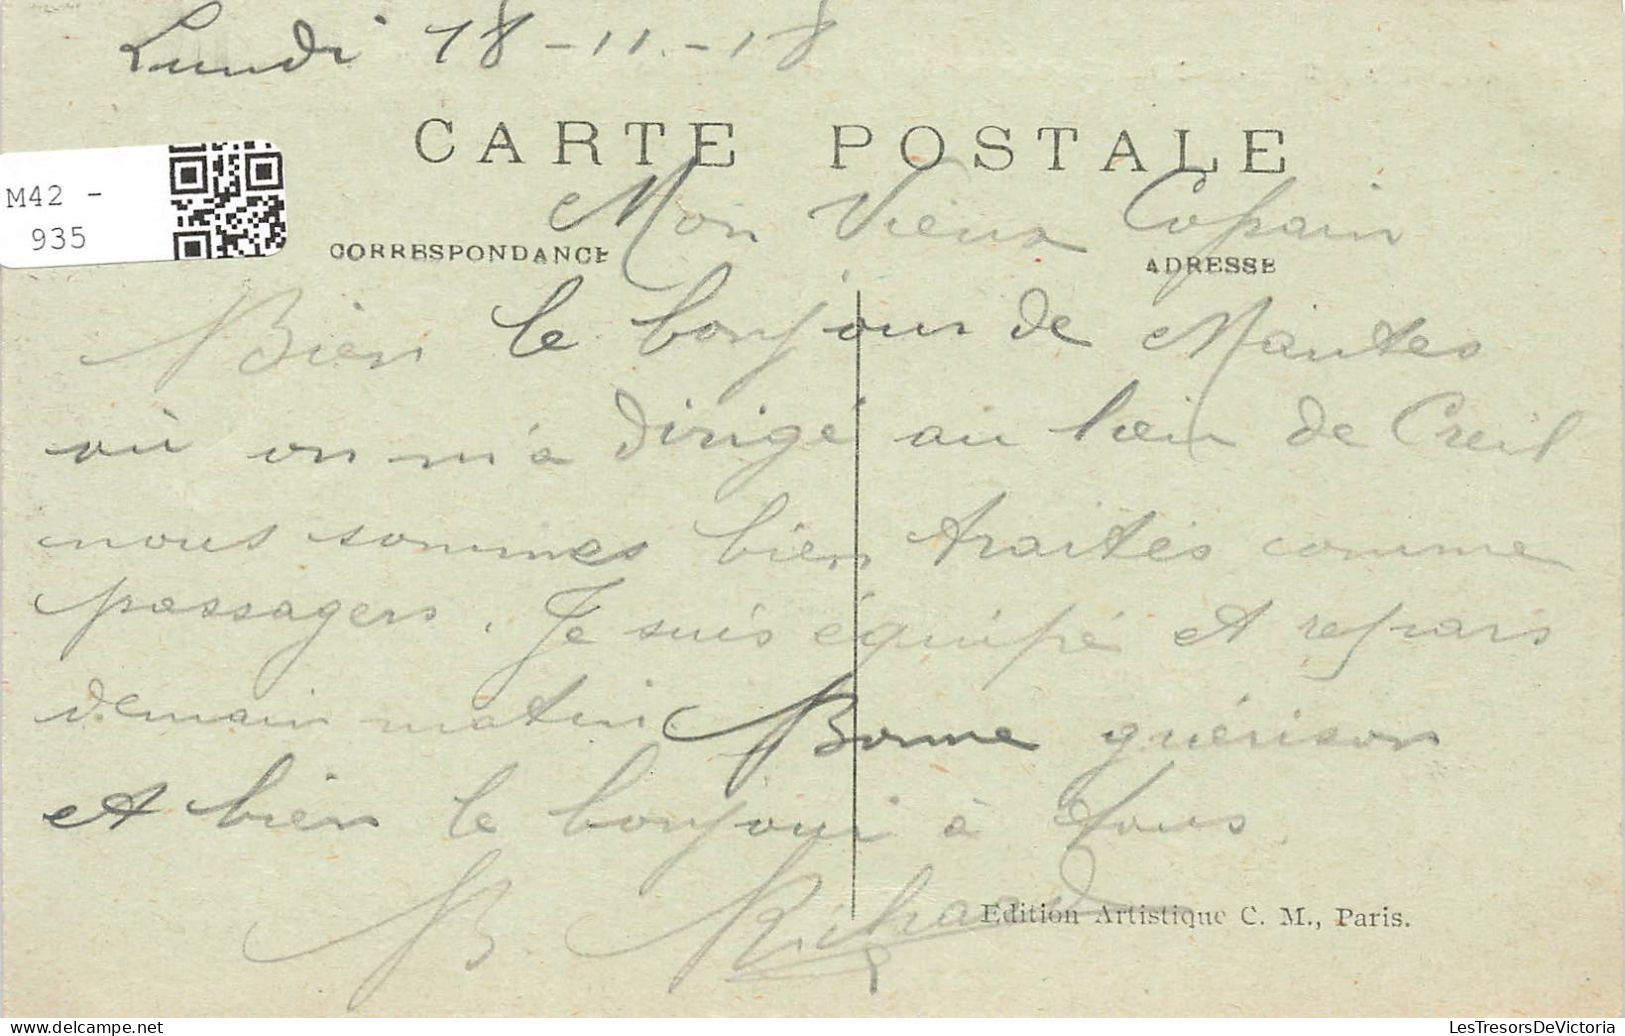 Lundi 18-11-18
CARTE POSTALE
M42 -
935
Mon Vieux Copain
CORRESPONDANCE
ADRESSE
Bien le bonjour de Mantes
où on m'a dirigé au lieu de Creil
nous sommes bien traités comme
passagers. Je suis équipé et repars
demain matin. Bonne guérison
et bien le bonjour à tous
B. Richard
Edition Artistique C. M., Paris.
LesTresorsDeVictoria@delcampe.net
LesTresorsDeVictoria